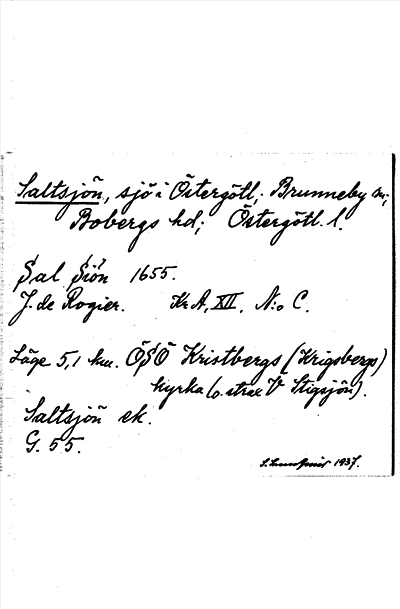 Saltsjön, sjö i Östergötl; Brunneby sn;
Bobergs hd; Östergötl. l.
Sal Siön 1655.
J. de Rogier. Kr A, XII, N:o C.
Läge 5,1 km. ÖSÖ Kristbergs (Krigsbergs)
kyrka (o. strax V Stigsjön).
Saltsjön ek.
G. 55.
1937.